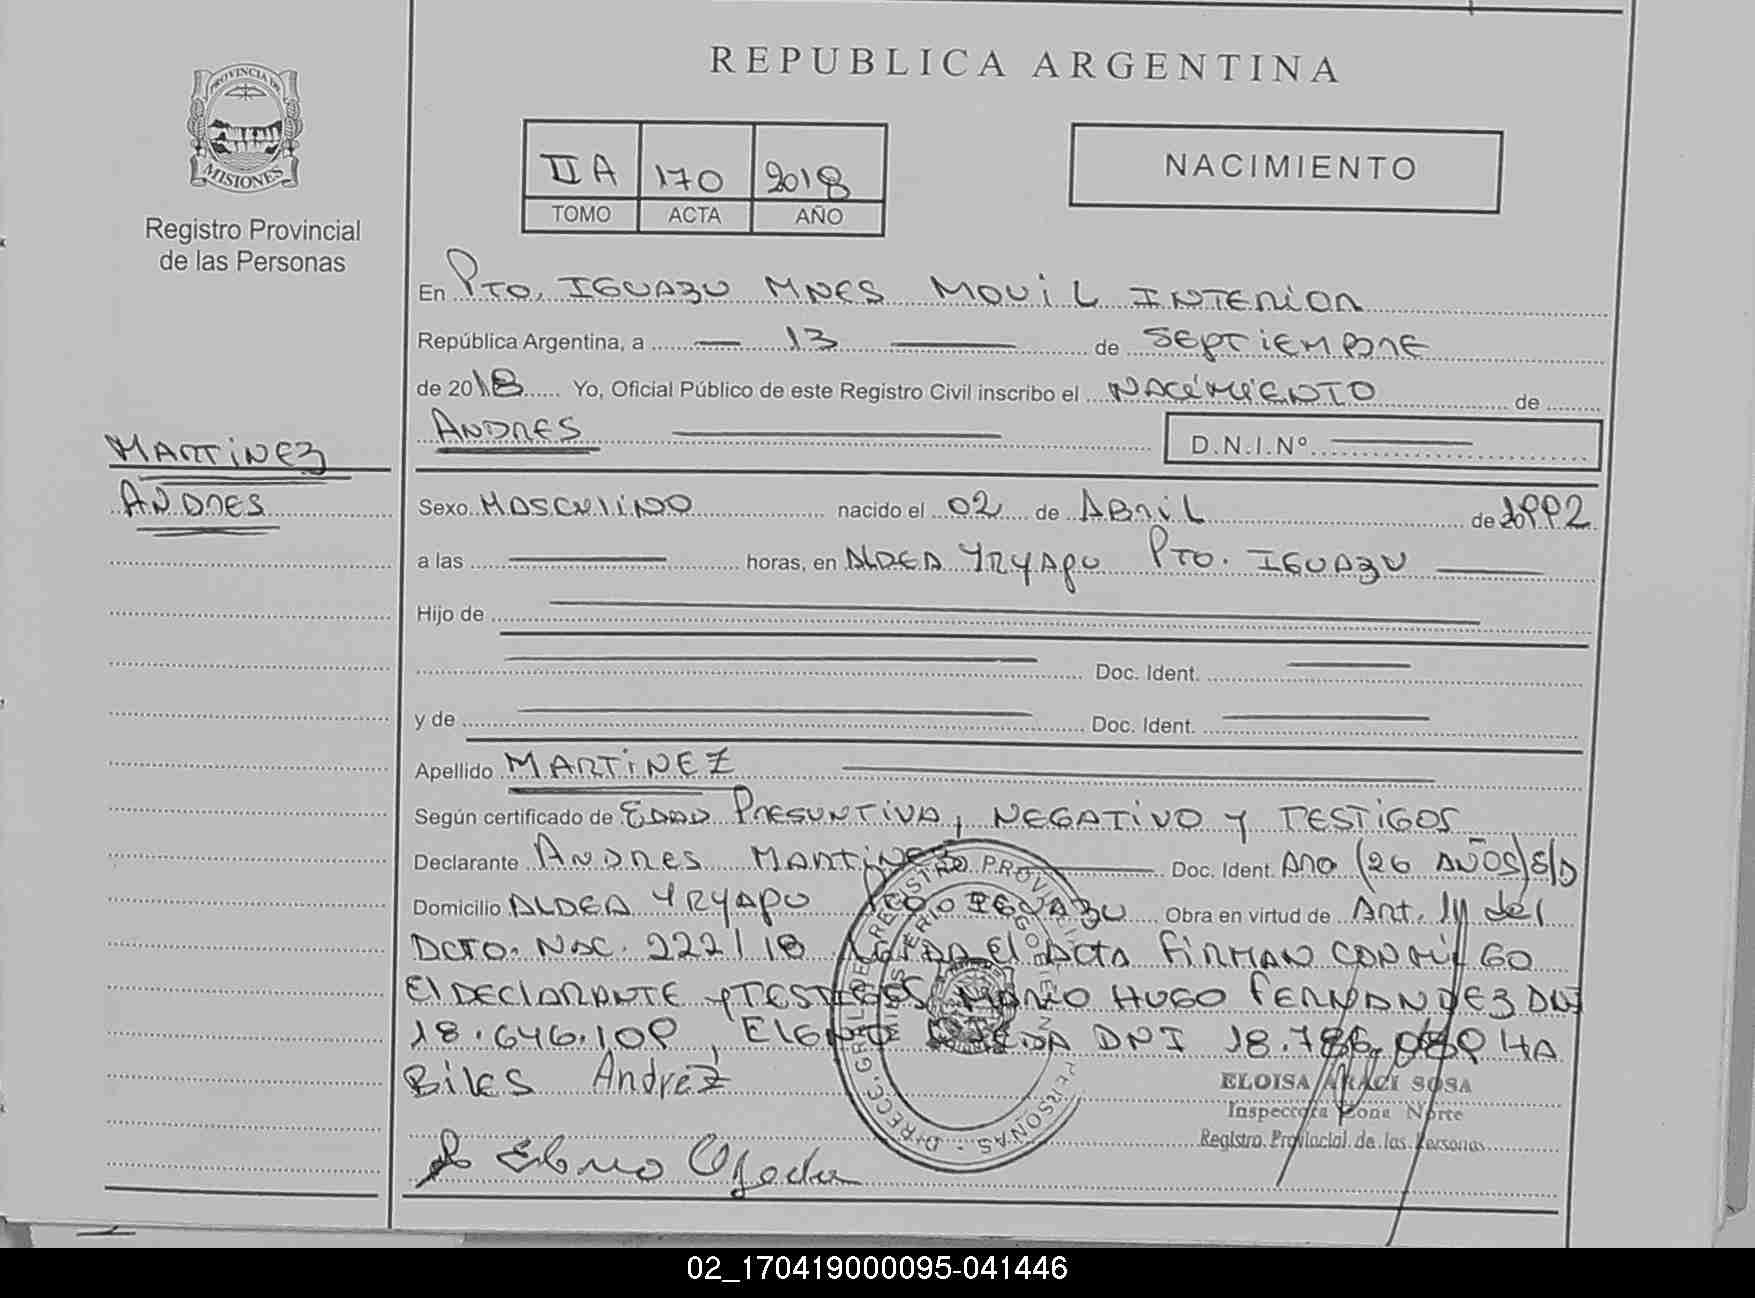 REPUBLICA ARGENTINA
PROVINCIA DE
MISIONES
Registro Provincial
de las Personas
II A 170 2018
TOMO ACTA AÑO
NACIMIENTO
En Pto. IGUAZU MNES MOVIL INTERIOR
República Argentina, a 13 de SEPTIEMBRE
de 2018 Yo, Oficial Público de este Registro Civil inscribo el NACIMIENTO de
ANDRES D.N.I.Nº
MARTINEZ
ANDRES
Sexo MASCULINO nacido el 02 de ABRIL de 1992
a las horas, en ALDEA YRYAPU Pto. IGUAZU
Hijo de
Doc. Ident.
y de Doc. Ident.
Apellido MARTINEZ
Según certificado de EDAD PRESUNTIVA, NEGATIVO Y TESTIGOS
Declarante ANDRES MARTINEZ Doc. Ident. ARG (26 AÑOS) S/D
Domicilio ALDEA YRYAPU PTO IGUAZU Obra en virtud de Art. del
DCTO. NAC. 222/18 LEIDA El ACTA FIRMAN CONMIGO
El DECLARANTE y TESTIGOS MARIO HUGO FERNANDEZ DNI
18.646.109, ELENO OJEDA DNI 18.786.089 HA
BILES Andrez
Eleno Ojeda
DIRECC. GRAL. DE REGISTRO PROVINCIAL PERSONAS
ELOISA ARACI SOSA
Inspectora Zona Norte
Registro Provincial de las Personas
02_170419000095-041446